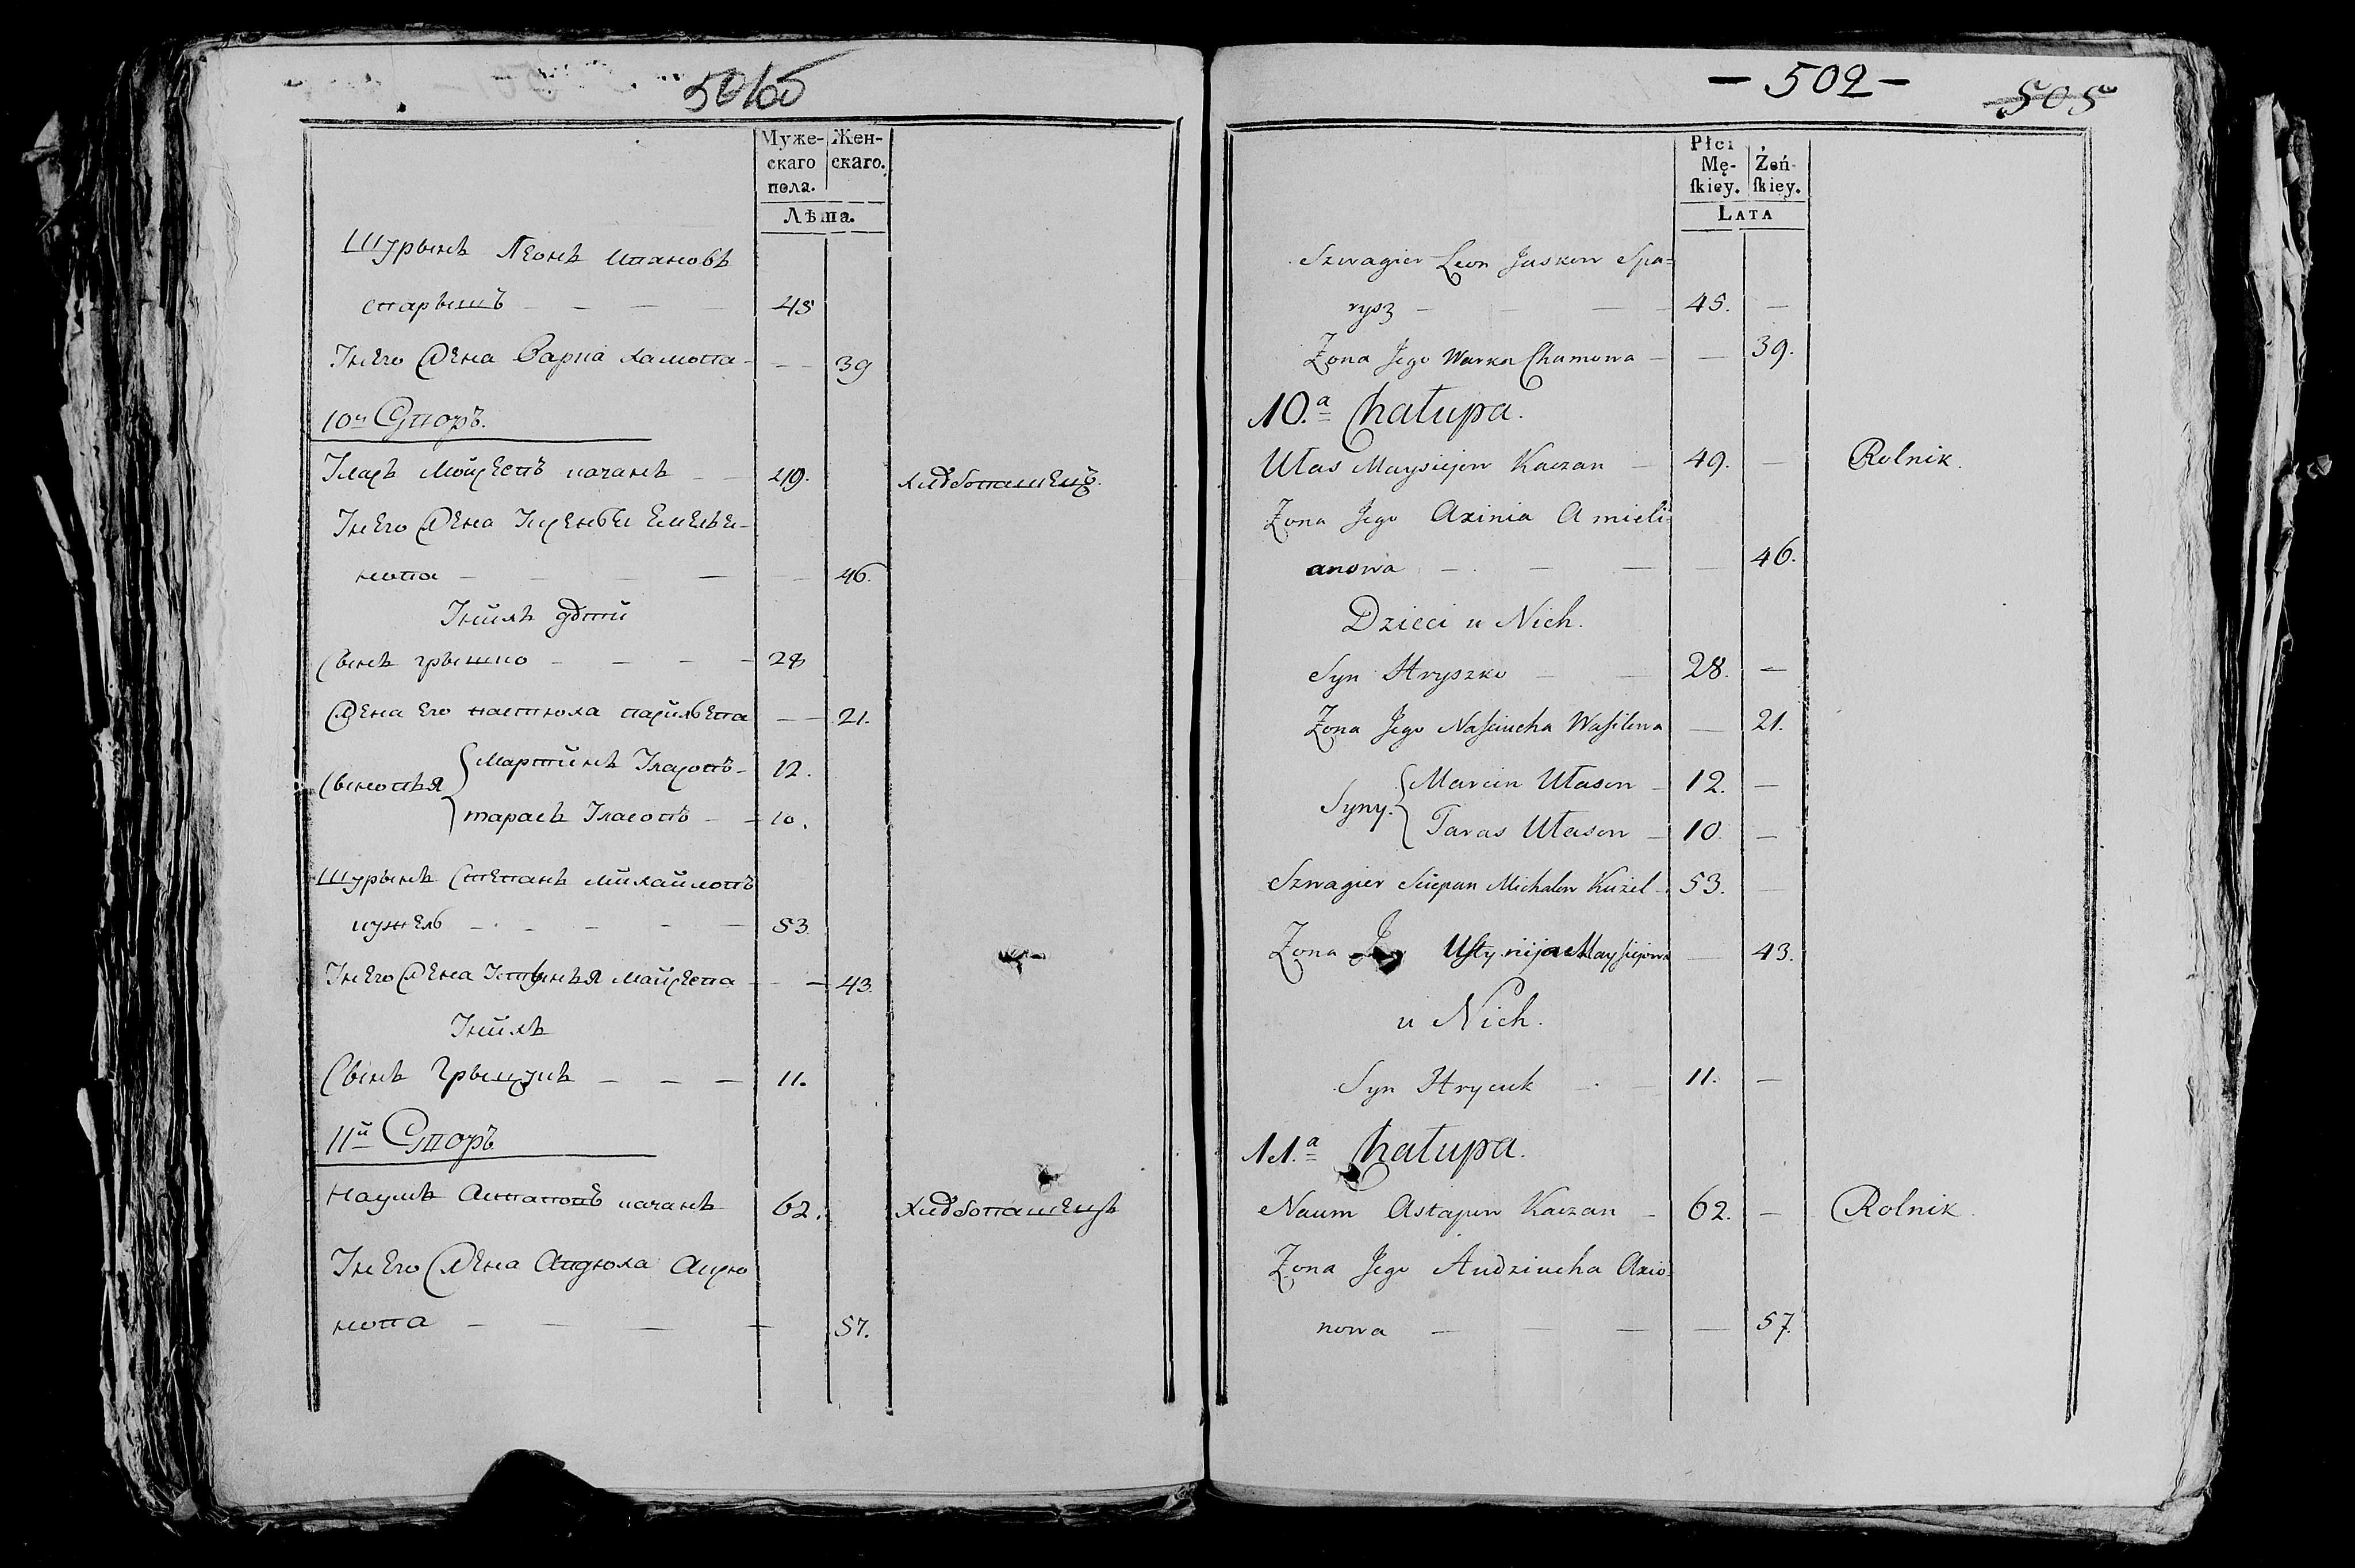 Муже-
скаго
пола.
Жен-
скаго.
Лѣта.
Шурынъ Леонъ
старышъ — — — 45
Жена Варка — — 39
10й Дворъ.
качанъ — — 49. хлѣбопашецъ.
Жена
нова — — — — 46.
дѣти
Сынъ грышко — — — 28
Жена его настюха васильева — — 21.
Сыновья { мартинъ Уласовъ — 12.
тарасъ Уласовъ — — 10.
Шурынъ Степанъ михайловъ
кужель — — — — 53
Жена — — 43.
Сынъ Грыцукъ — — — 11.
11й Дворъ
Наумъ Астаповъ качанъ 62. хлѣбопашецъ
Жена Авдюха Аксю
нова — — — — 57.
— 502 — 505
Płci
Mę-
skiey.
Żeń-
skiey.
LATA
Szwagier Leon Jaskow Spa=
rysz — — — 45. —
Żona Jego Warka Chamowa — — 39.
10.a Chałupa.
Ułas Maysiejow Kaczan — 49. — Rolnik.
Żona Jego Axinia Amieli=
anowa — — — — 46.
Dzieci u Nich.
Syn Hryszko — — 28. —
Żona Jego Nasciucha Wasilewa — 21.
Syny. { Marcin Ułasow — 12. —
Taras Ułasow — 10. —
Szwagier Sciepan Michałow Kużel — 53. —
Żona Ustynija Maysiejowa — 43.
u Nich.
Syn Hrycuk — — 11. —
11.a Chałupa.
Naum Astapow Kaczan — 62. — Rolnik
Żona Jego Audziucha Axio=
nowa — — — — 57.